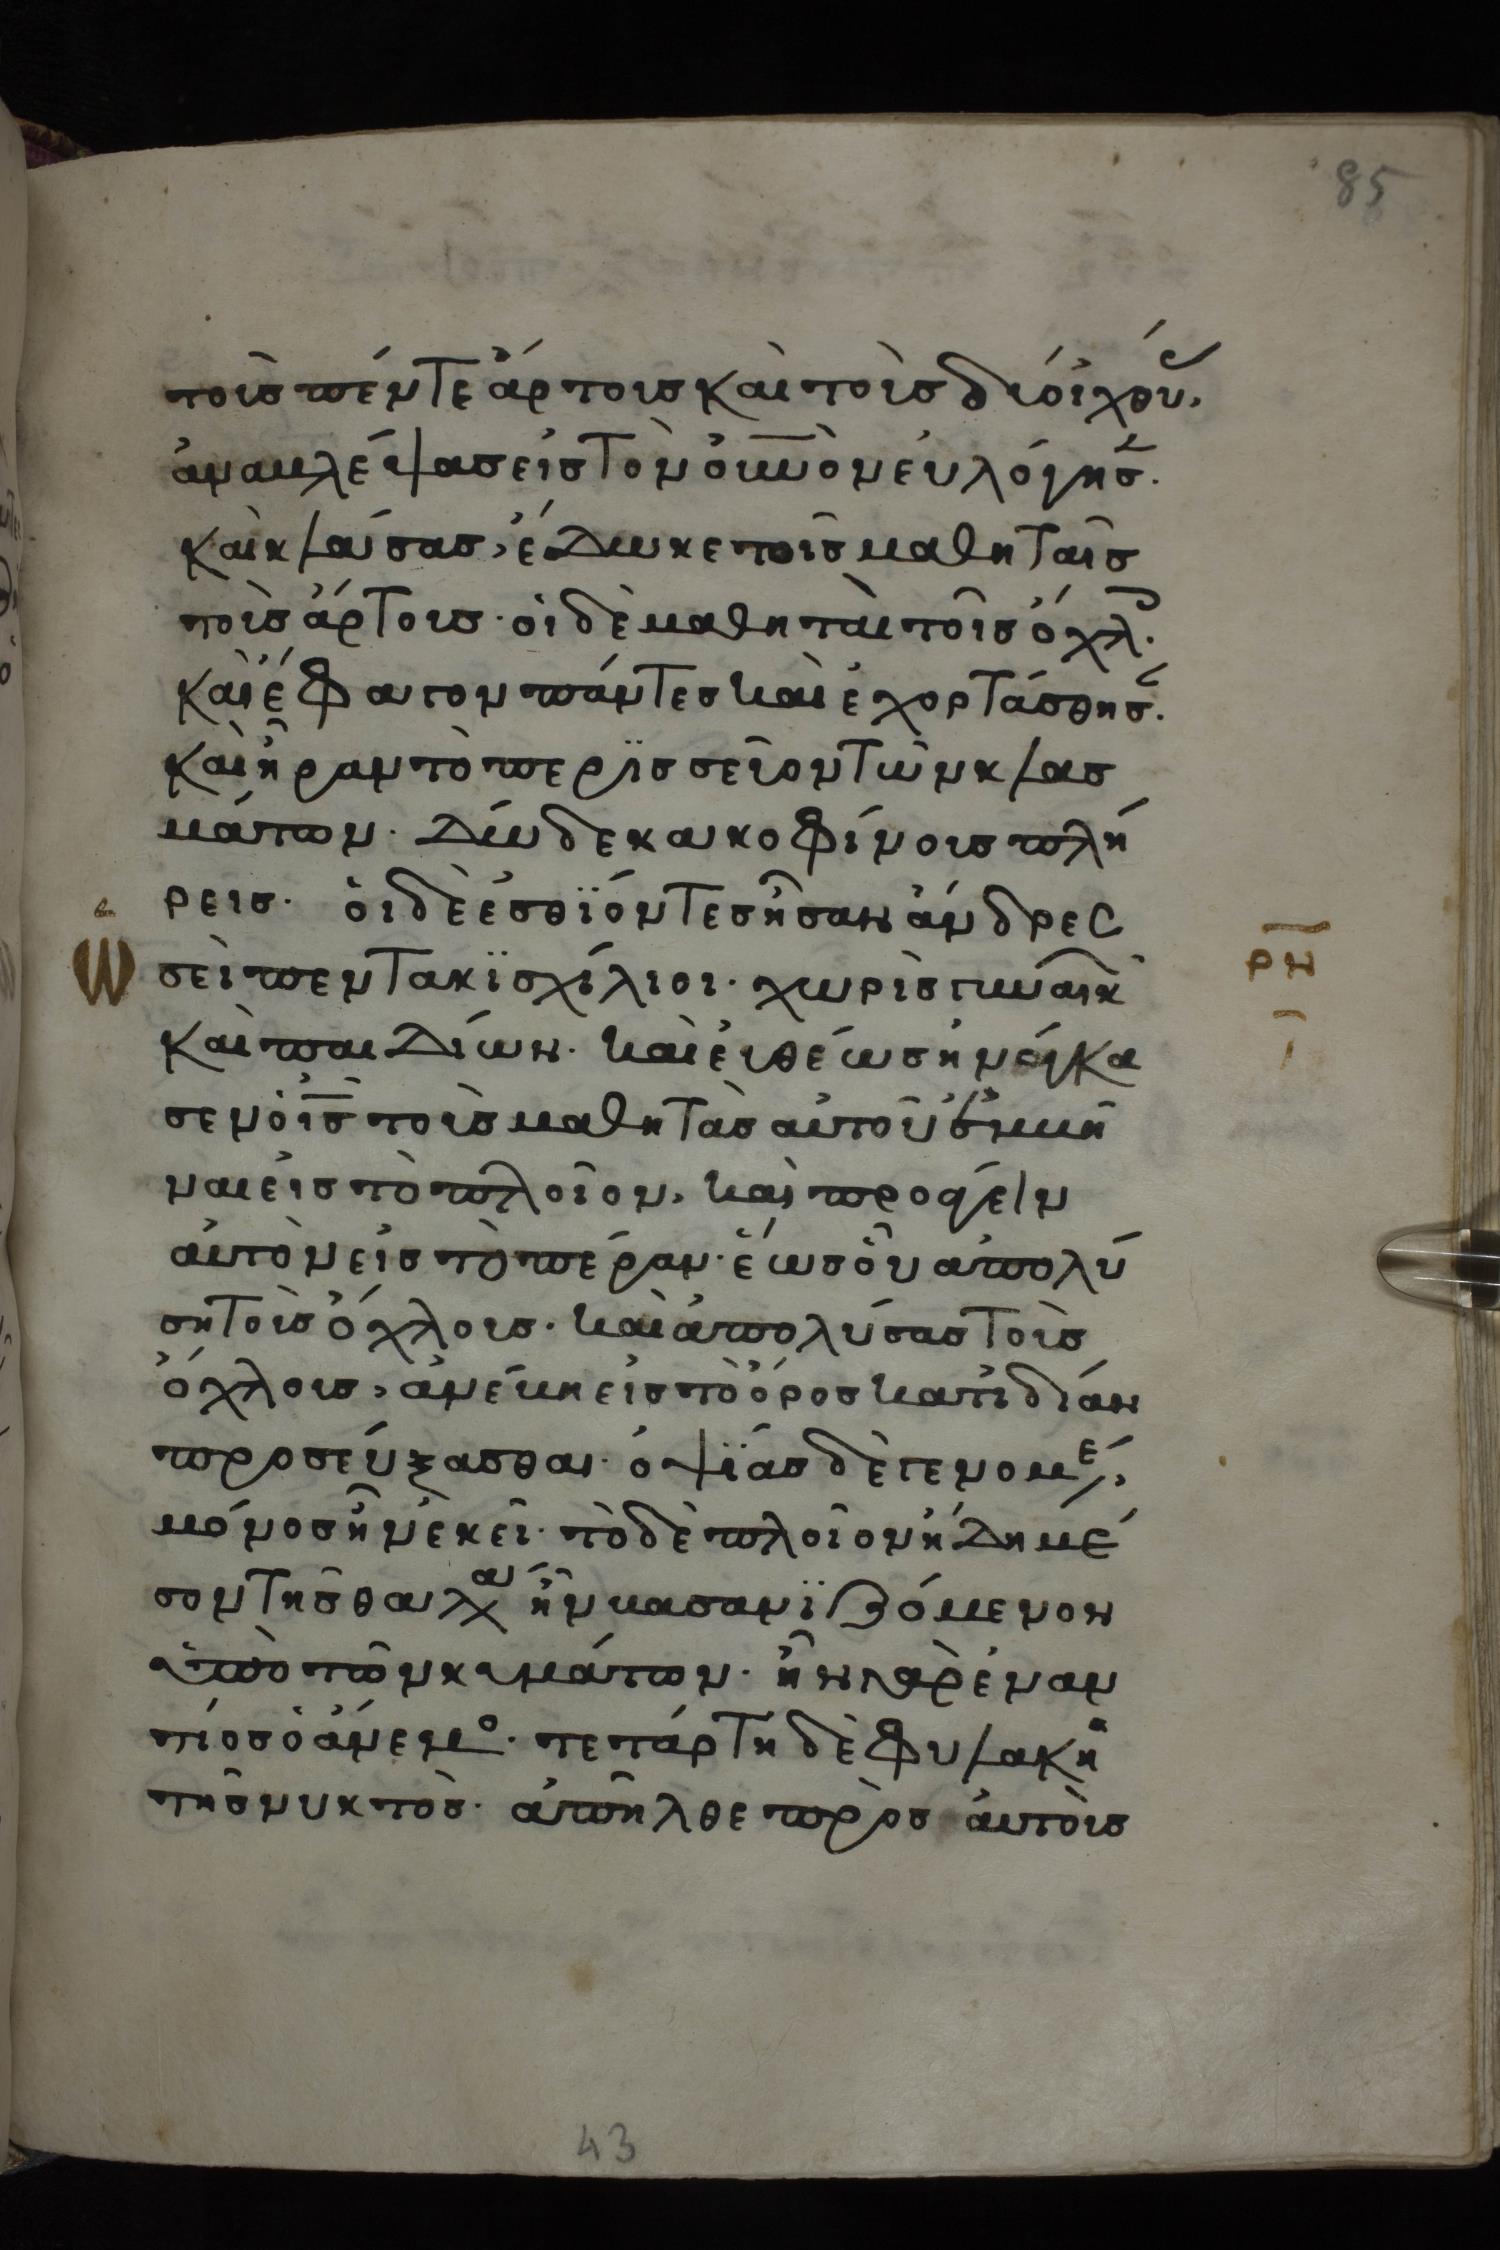 85
τοὺς πέντε ἄρτους καὶ τοὺς δύο ἰχθύ,
ἀναβλέψας εἰς τὸν οὐνὸν εὐλόγησ.
καὶ κλάσας, ἔδωκε τοῖς μαθηταῖς
τοὺς ἄρτους· οἱ δὲ μαθηταὶ τοῖς ὄχλ.
καὶ ἔφαγον πάντες καὶ ἐχορτάσθησ.
καὶ ἦραν τὸ περισσεῦον τῶν κλασ
μάτων. δώδεκα κοφίνους πλή
ρεις. οἱ δὲ ἐσθϊόντες ἦσαν ἄνδρες
ὡσεὶ πεντακϊσχίλιοι. χωρὶς γυναικ
καὶ παιδίων. καὶ εὐθέως ἠνάγκα
σεν ὁ ις τοὺς μαθητὰς αὐτοῦ ἐμβῆ
ναι εἰς τὸ πλοῖον, καὶ προάγειν
αὐτὸν εἰς τὸ πέραν. ἕως οὗ ἀπολύ
ση τοὺς ὄχλους. καὶ ἀπολύσας τοὺς
ὄχλους, ἀνέβη εἰς τὸ ὄρος κατιδίαν
προσεύξασθαι. ὀψϊας δὲ γενομέ,
μόνος ἦν ἐκεῖ. τὸ δὲ πλοῖον ἤδη μέ
σον τῆς θαλ ἦν βασανϊζόμενον
ὑπὸ τῶν κυμάτων. ἦν γὰρ ἐναν
τίος ὁ ἄνεμο. τετάρτη δὲ φυλακῆ
τῆς νυκτὸς. ἀπῆλθε πρὸς αὐτοὺς
43